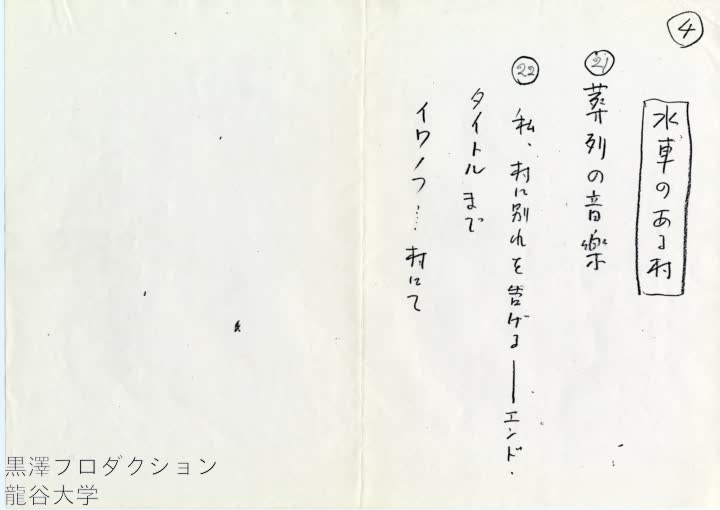 ④
水車のある村
㉑ 葬列の音楽
㉒ 私、村に別れを告げる——エンド.
タイトルまで
イワノフ…… 村にて
黒澤プロダクション
龍谷大学